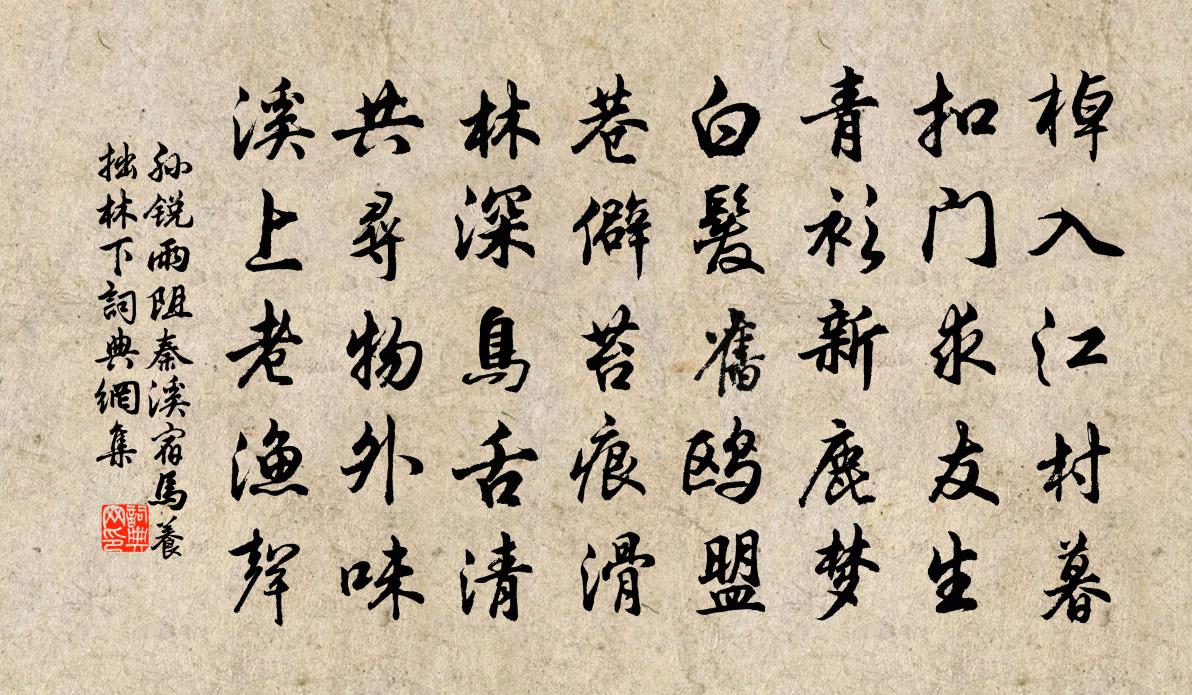 棹入江村暮
扣门求友生
青衫新鹿梦
白髮舊鸥盟
巷僻苔痕滑
林深鳥舌清
共尋物外味
溪上老渔聲
孙锐雨阻秦溪宿馬養
拙林下詞典網集
詞典网印